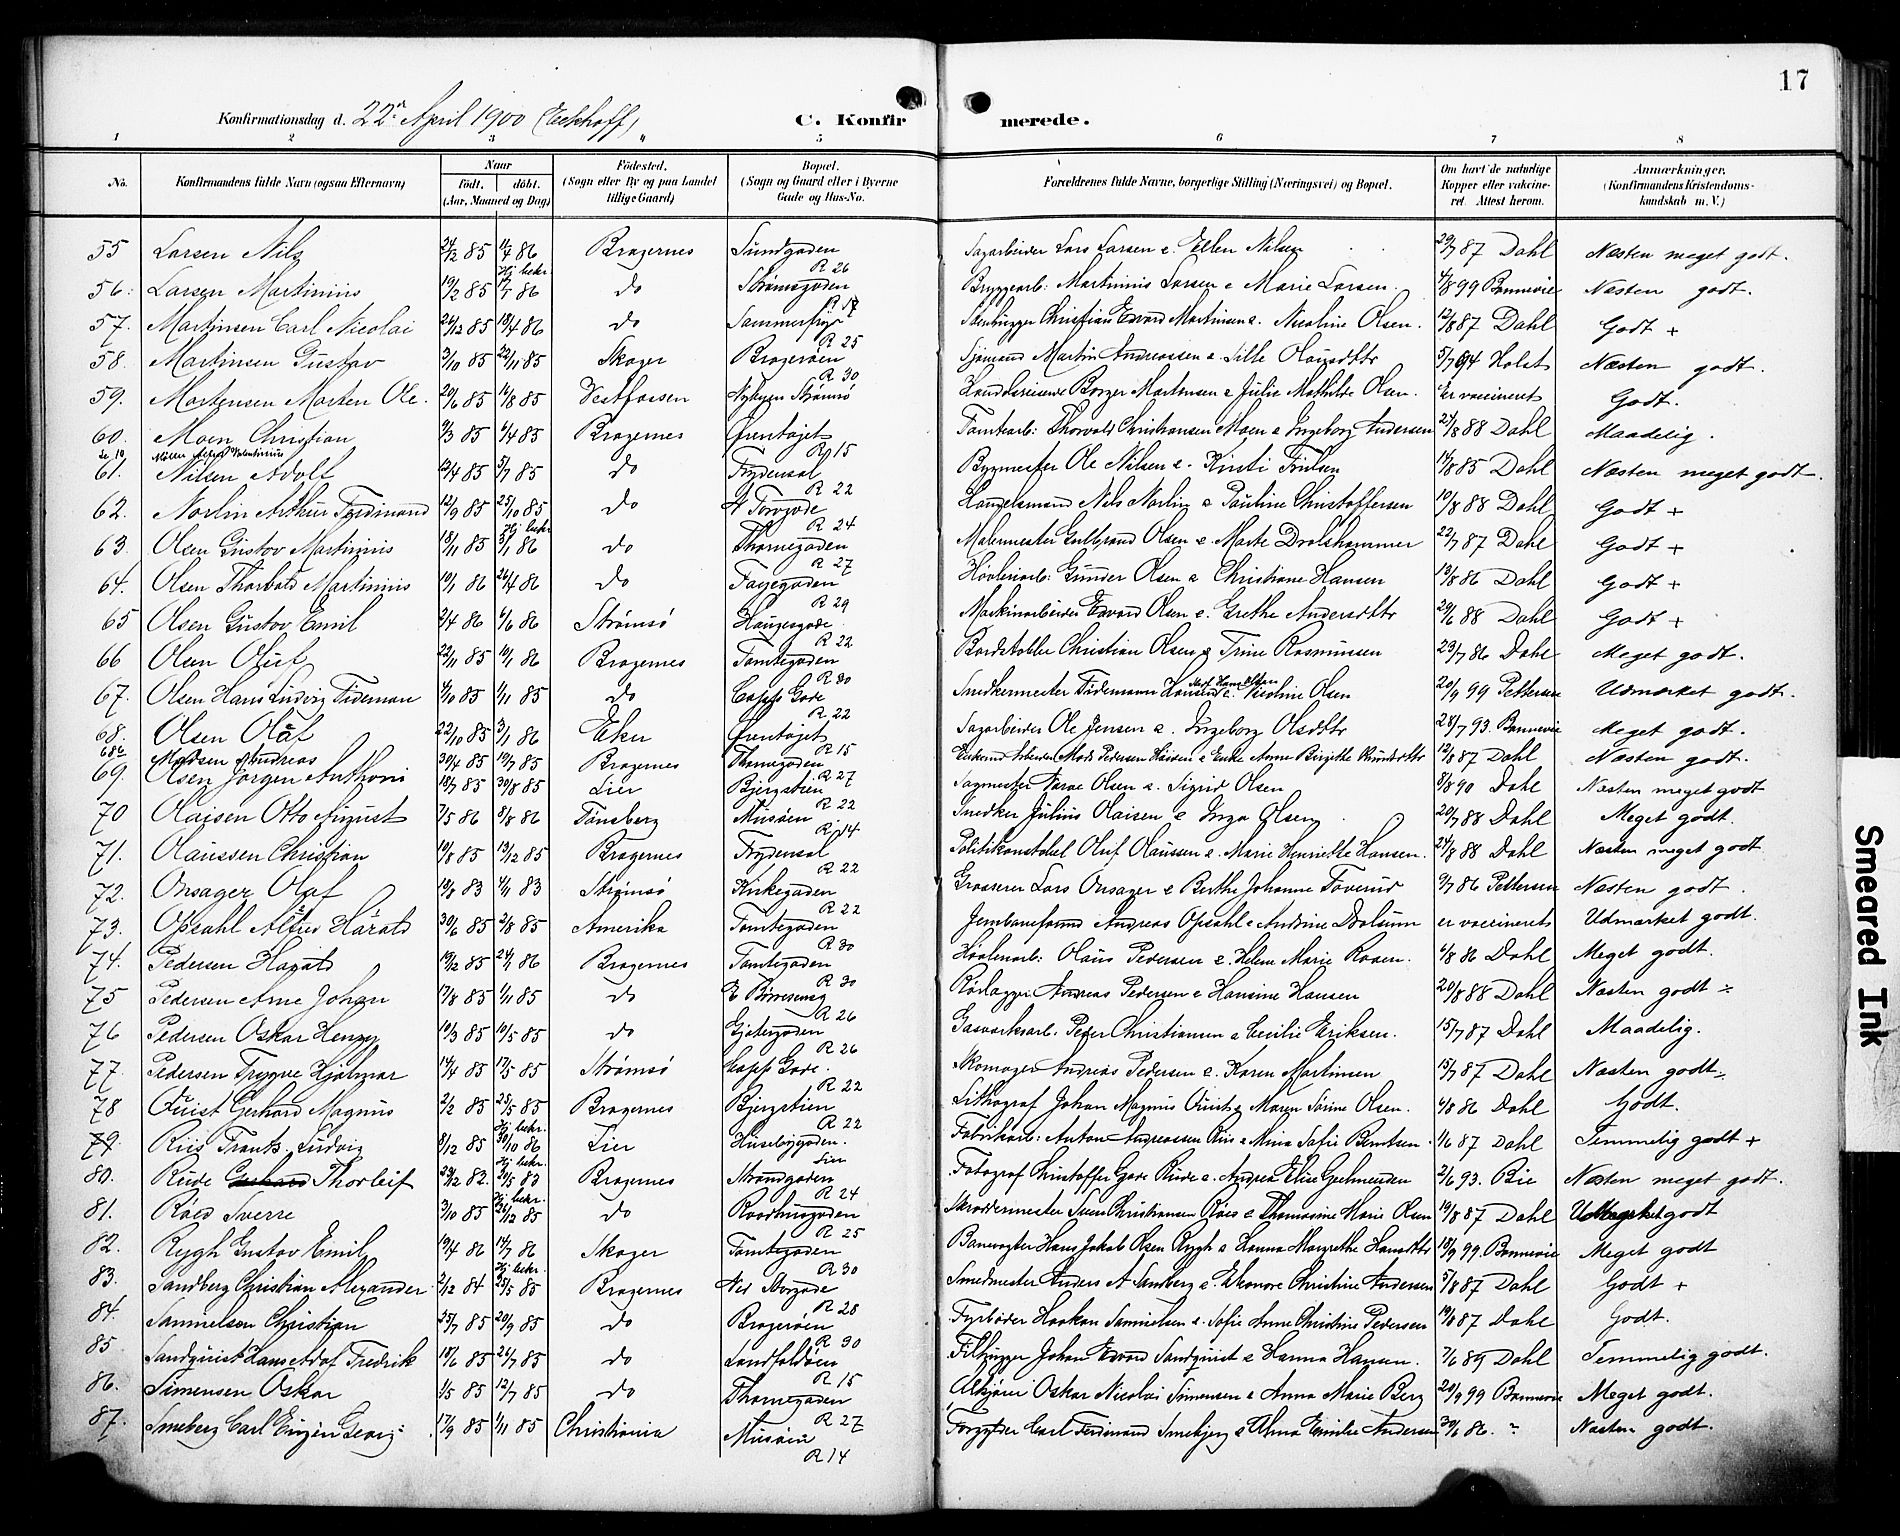 17
Konfirmationsdag d. 22n April 1900 (Eckhoff)
C. Konfirmerede.
1 2 3 4 5 6 7 8
No. Konfirmandens fulde Navn (ogsaa Efternavn) Naar født. døbt. (Aar, Maaned og Dag) Fødested. (Sogn eller By og paa Landet tillige Gaard) Bopæl. (Sogn og Gaard eller i Byerne Gade og Hus-No. Forældrenes fulde Navne, borgerlige Stilling (Næringsvei) og Bopæl. Om havt de naturlige Kopper eller vakcineret. Attest herom. Anmærkninger. (Konfirmandens Kristendomskundskab m. V.)
55 Larsen Nils 24/2 85 11/4 86 Bragernes Sundgaden R 26 Sagarbeider Lars Larsen & Ellen Nilsen 29/7 87 Dahl Næsten meget godt.
56. Larsen Martinius 19/2 85 Hj bekr. 17/7 86 do Strømsgaden R 17 Bryggearb: Martinius Larsen & Marie Larsen. 4/8 99 Bonnevie Næsten godt.
57. Martinsen Carl Nicolai 26/12 85 18/4 86 do Sommerfryd R 25 Stenhugger Christian Edvard Martinsen & Nicoline Olsen. 12/8 87 Dahl Godt +
58. Martinsen Gustav 3/10 85 22/11 85 Skoger Bragerøen R 30 Sjømand Martin Andreassen & Lille Olausdttr 5/7 94 Holst Næsten godt.
59. Mortensen Morten Ole. 20/6 85 16/8 85 Vestfossen Nybyen Strømsø Handelsreisende Borger Mortensen & Julie Mathilde Olsen. Er vaccineret Godt.
60. Moen Christian 9/3 85 6/4 85 Bragernes Øventøjet R 15 Tomtearb: Thorvald Christiansen Moen & Ingeborg Andersen 27/8 88 Dahl Maadelig.
Møller Alfred Valentinius
61. Nilsen Adolf 12/4 85 5/7 85 do Frydensal R 22 Bygmester Ole Nilsen & Kirsti Nilsen 14/8 85 Dahl Næsten meget godt.
62. Norlin Arthur Ferdinand 12/9 85 25/10 85 do N Torvgade R 24 Handelsmand Nils Norlin & Pauline Christoffersen 10/8 88 Dahl Godt +
63. Olsen Gustav Martinius 18/11 85 Hj bekr 3/1 86 do Thornegaden R 27 Malermester Gulbrand Olsen & Marte Drolshammer 22/7 87 Dahl Godt +
64. Olsen Thorbald Martinius 10/1 86 26/4 86 do Fayegaden R 29 Høvleriarb: Gunder Olsen & Christiane Hansen 13/8 86 Dahl Godt +
65 Olsen Gustav Emil 2/4 86 6/6 86 Strømsø Haugesgade R 22 Maskinarbeider Edvard Olsen & Grethe Andersdttr 29/6 88 Dahl Godt +
66 Olsen Oluf 22/11 85 10/1 86 Bragernes Tomtegaden R 30 Bordstabler Christian Olsen & Trine Rasmussen 23/7 86 Dahl Meget godt.
67. Olsen Hans Ludvig Tideman 4/10 85 1/11 85 do Cappl Gade R 22 Snedkermester Tidemann Hansen & Nicoline Olsen 20/9 99 Pettersen Udmærket godt.
68. Olsen Olaf 22/10 85 3/1 86 Eker Øventøjet R 15 Sagarbeider Ole Jensen & Ingeborg Olsdttr 28/7 93. Bonnevie Meget godt.
68b Madsen Andreas 30/4 85 19/7 85 Bragernes Thornegaden R 27 Enkemd Arbeider Mads Pedersen Hansen & Enke Anne Birgithe Knudsdttr 12/8 87 Dahl Næsten godt.
69. Olsen Jørgen Anthoni 18/7 85 30/8 85 Lier Bjergstien R 22 Sagmester Narve Olsen & Sigrid Olsen 8/8 90 Dahl Næsten meget godt
70 Olaisen Otto August 7/5 86 8/8 86 Tønsberg Musøen R 14 Snedker Julius Olaisen & Inga Olsen 20/7 88 Dahl Meget godt.
71. Olaussen Christian 10/8 85 13/12 85 Bragernes Frydensal R 22 Politikonstabel Oluf Olaussen & Marie Henriette Hansen. 24/8 88 Dahl Næsten meget godt
72. Onsager Olaf 10/8 83 4/11 83 Strømsø Kirkegaden R 22 Grosserer Lars Onsager & Berthe Johanne Foverud 9/7 86 Pettersen Næsten godt.
73. Opsahl Alfred Harald 30/6 85 2/8 85 Amerika Tomtegaden R 30 Jernbaneformd Andreas Opsahl & Andrine Dølsum er vaccineret Udmærket godt.
74. Pedersen Harald 19/12 85 24/1 86 Bragernes Tomtegaden R 30 Høvleriarb: Olaus Pedersen & Helene Marie Roaen. 6/8 86 Dahl Meget godt.
75 Pedersen Arne Johan 17/8 85 1/11 85 do E Børresensg R 26 Rørlægger Andreas Pedersen & Hansine Hansen 20/8 88 Dahl Næsten godt ÷
76 Pedersen Oskar Henry 10/3 85 10/5 85 do Gjetergaden R 26 Gasværksarb. Peder Christiansen & Cecilie Eriksen. 15/7 87 Dahl Maadelig.
77. Pedersen Trygve Hjalmar 14/4 85 17/5 85 Strømsø Cappl Gade. R 22 Skomager Andreas Pedersen & Karen Martinsen 15/7 87 Dahl Næsten godt ÷
78 Quist Gerhard Magnus 2/2 85 25/5 85 Bragernes Bjergstien R 22 Lithograf Johan Magnus Quist & Maren Sørine Olsen. 4/8 86 Dahl Godt.
79. Riis Frants Ludvig 8/12 85 Hj bekr. 30/10 86 Lier Husebygaden. Lier Fabrikarb: Anton Andreassen Riis & Mina Sofie Berntsen. 1/6 87 Dahl Temmelig godt +
80. Rude Gerhard Thorleif 23/12 82. Hj bekr. 20/5 83 Bragernes Strandgaden R 24 Fotograf Christoffer Gade Rude & Andrea Elise Guelmunden 2/6 93. Bie Næsten meget godt.
81. Røed Sverre 3/10 85 Hj bekr. 26/12 85 do Raadhusgaden R 25 Skræddermester Sven Christiansen Røed & Thomasine Marie Olsen 19/8 87 Dahl Udmærket godt
82. Rygh Gustav Emil 19/4 86 14/7 86 Skoger Tomtegaden R 30 Banevogter Hans Jakob Olsen Rygh & Hanna Margrethe Hansdttr 18/9 99. Bonnevie Meget godt
83. Sandberg Christian Alexander 2/12 84 Hj bekr. 25/5 85 Bragernes Ned Storgade R 28 Smedmester Anders A Sandberg & Eleonore Christine Andersen 5/8 87 Dahl Godt +
84. Samuelsen Christian 25/7 85 20/9 85 do Bragerøen R 30 Fyrbøder Haakon Samuelsen & Sofie Anne Christine Pedersen 19/8 87 Dahl Godt.
85 Sandquist Hans Adof Fredrik 18/6 85 26/7 85 do Landfaldøen R 15 Filhugger Johan Edvard Sandquist & Hanna Hansen. 7/6 89 Dahl Temmelig godt.
86. Simensen Oskar 1/5 85 12/7 85 do Thornegaden R 27 Oskar Nicolai Simensen & Anna Marie Berg 20/9 99 Bonnevie Meget godt.
87. Smeberg Carl Eugen Georg 17/9 85 1/11 85 Christiania Musøen R 14 Forgylder Carl Ferdinand Smeberg & Alma Emilie Andersen 30/6 86. " Næsten godt.
Smeared Ink